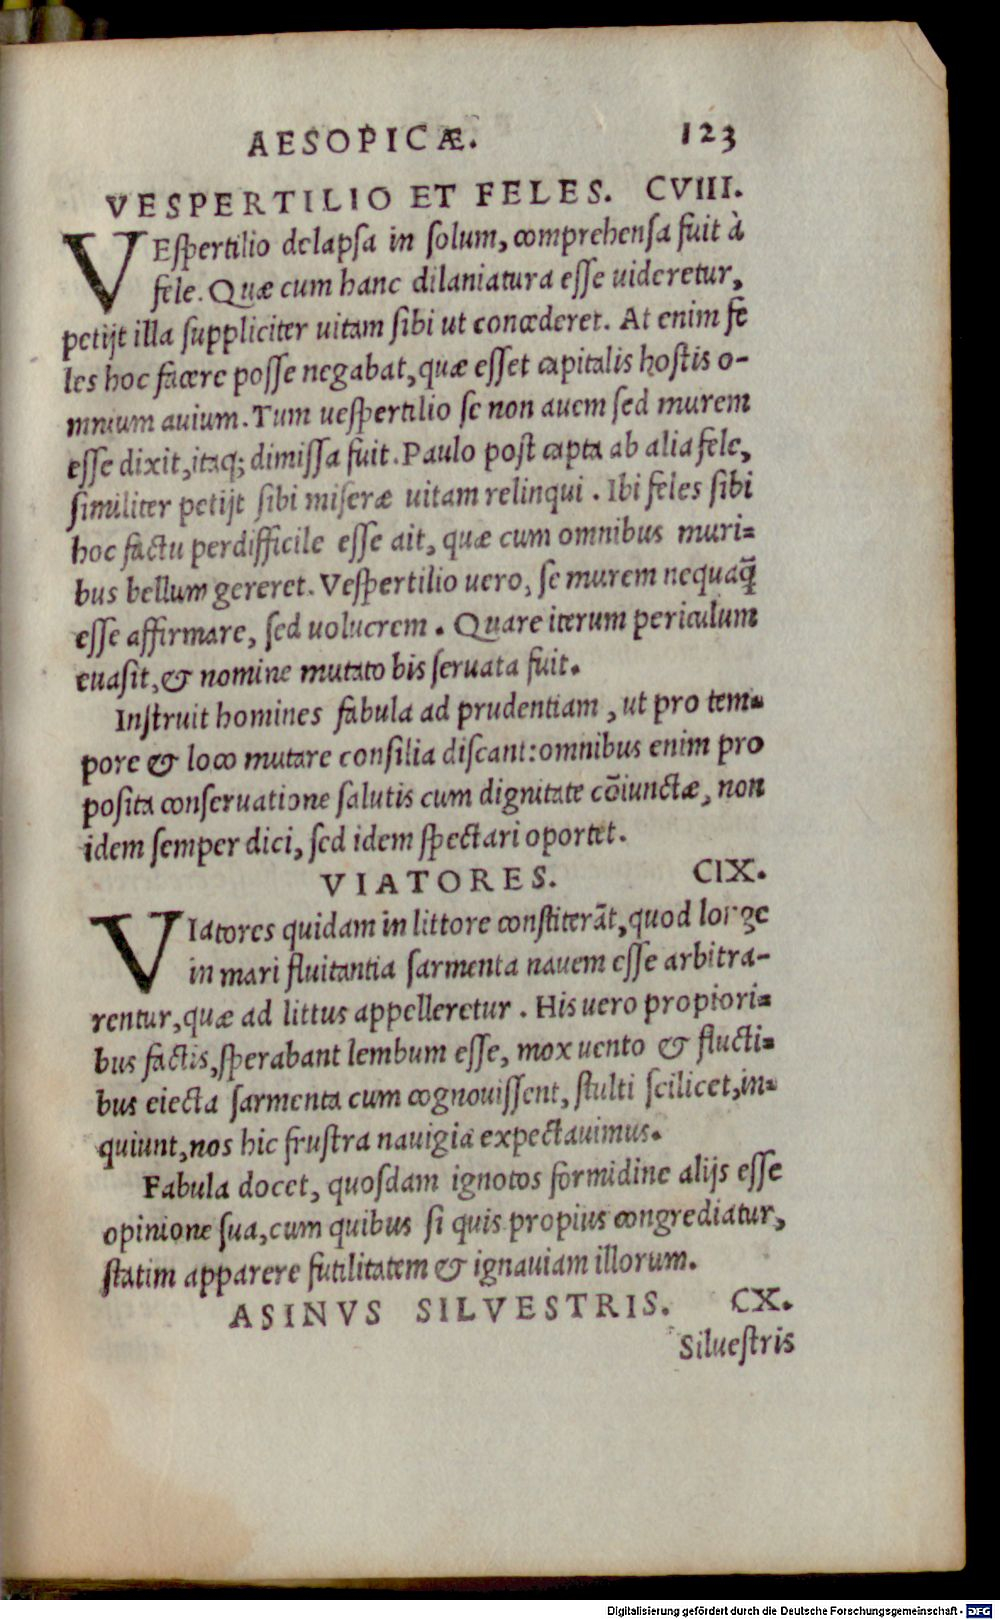 AESOPICÆ. 123
VESPERTILIO ET FELES. CVIII.
VEſpertilio delapſa in ſolum, comprehenſa fuit à
fele. Quæ cum hanc dilaniatura eſſe uideretur,
petijt illa ſuppliciter uitam ſibi ut concederet. At enim fe
les hoc facere poſſe negabat, quæ eſſet capitalis hoſtis o-
mnium auium. Tum ueſpertilio ſe non auem ſed murem
eſſe dixit, itaq; dimiſſa fuit. Paulo poſt capta ab alia fele,
ſimiliter petijt ſibi miſeræ uitam relinqui. Ibi feles ſibi
hoc factu perdifficile eſſe ait, quæ cum omnibus muri-
bus bellum gereret. Veſpertilio uero, ſe murem nequaq̃
eſſe affirmare, ſed uolucrem. Quare iterum periculum
euaſit, & nomine mutato bis ſeruata fuit.
Inſtruit homines fabula ad prudentiam, ut pro tem-
pore & loco mutare conſilia diſcant: omnibus enim pro
poſita conſeruatione ſalutis cum dignitate cōiunctæ, non
idem ſemper dici, ſed idem ſpectari oportet.
VIATORES. CIX.
VIatores quidam in littore conſtiterāt, quod longe
in mari fluitantia ſarmenta nauem eſſe arbitra-
rentur, quæ ad littus appelleretur. His uero propiori-
bus factis, ſperabant lembum eſſe, mox uento & flucti-
bus eiecta ſarmenta cum cognouiſſent, ſtulti ſcilicet, in-
quiunt, nos hic fruſtra nauigia expectauimus.
Fabula docet, quoſdam ignotos formidine alijs eſſe
opinione ſua, cum quibus ſi quis propius congrediatur,
ſtatim apparere futilitatem & ignauiam illorum.
ASINVS SILVESTRIS. CX.
Silueſtris
Digitalisierung gefördert durch die Deutsche Forschungsgemeinschaft - DFG